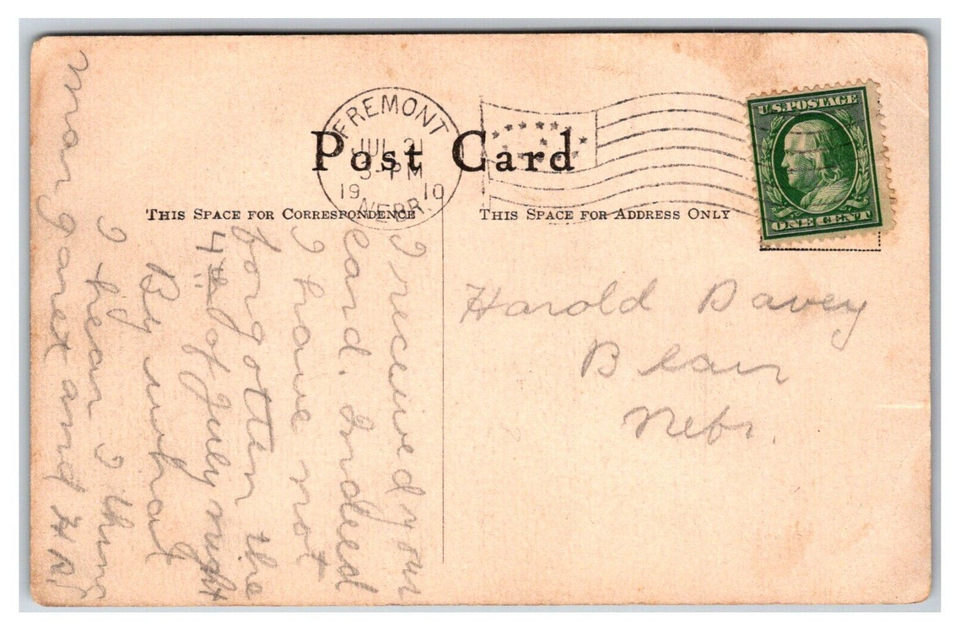 Post Card
THIS SPACE FOR CORRESPONDENCE
THIS SPACE FOR ADDRESS ONLY
FREMONT
JUL 21
3-PM
19 10
NEBR.
U.S. POSTAGE
ONE CENT
Harold Davey
Blair
Nebr.
I received your
card. Indeed
I have not
forgotten the
4th of July night
By what
I hear I think
Margaret and H